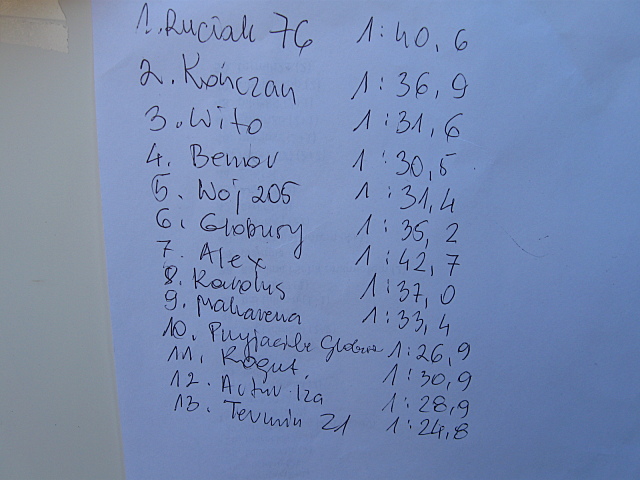 1. Ruciak 76 1:40,6
2. Kończan 1:36,9
3. Wito 1:31,6
4. Bemov 1:30,5
5. Wój 205 1:31,4
6. Globury 1:35,2
7. Alex 1:42,7
8. Karolus 1:37,0
9. Makarena 1:33,4
10. Przyjaciele 1:26,9
11. Kogut. 1:30,9
12. Artur Iza 1:28,9
13. Termin 21 1:24,8